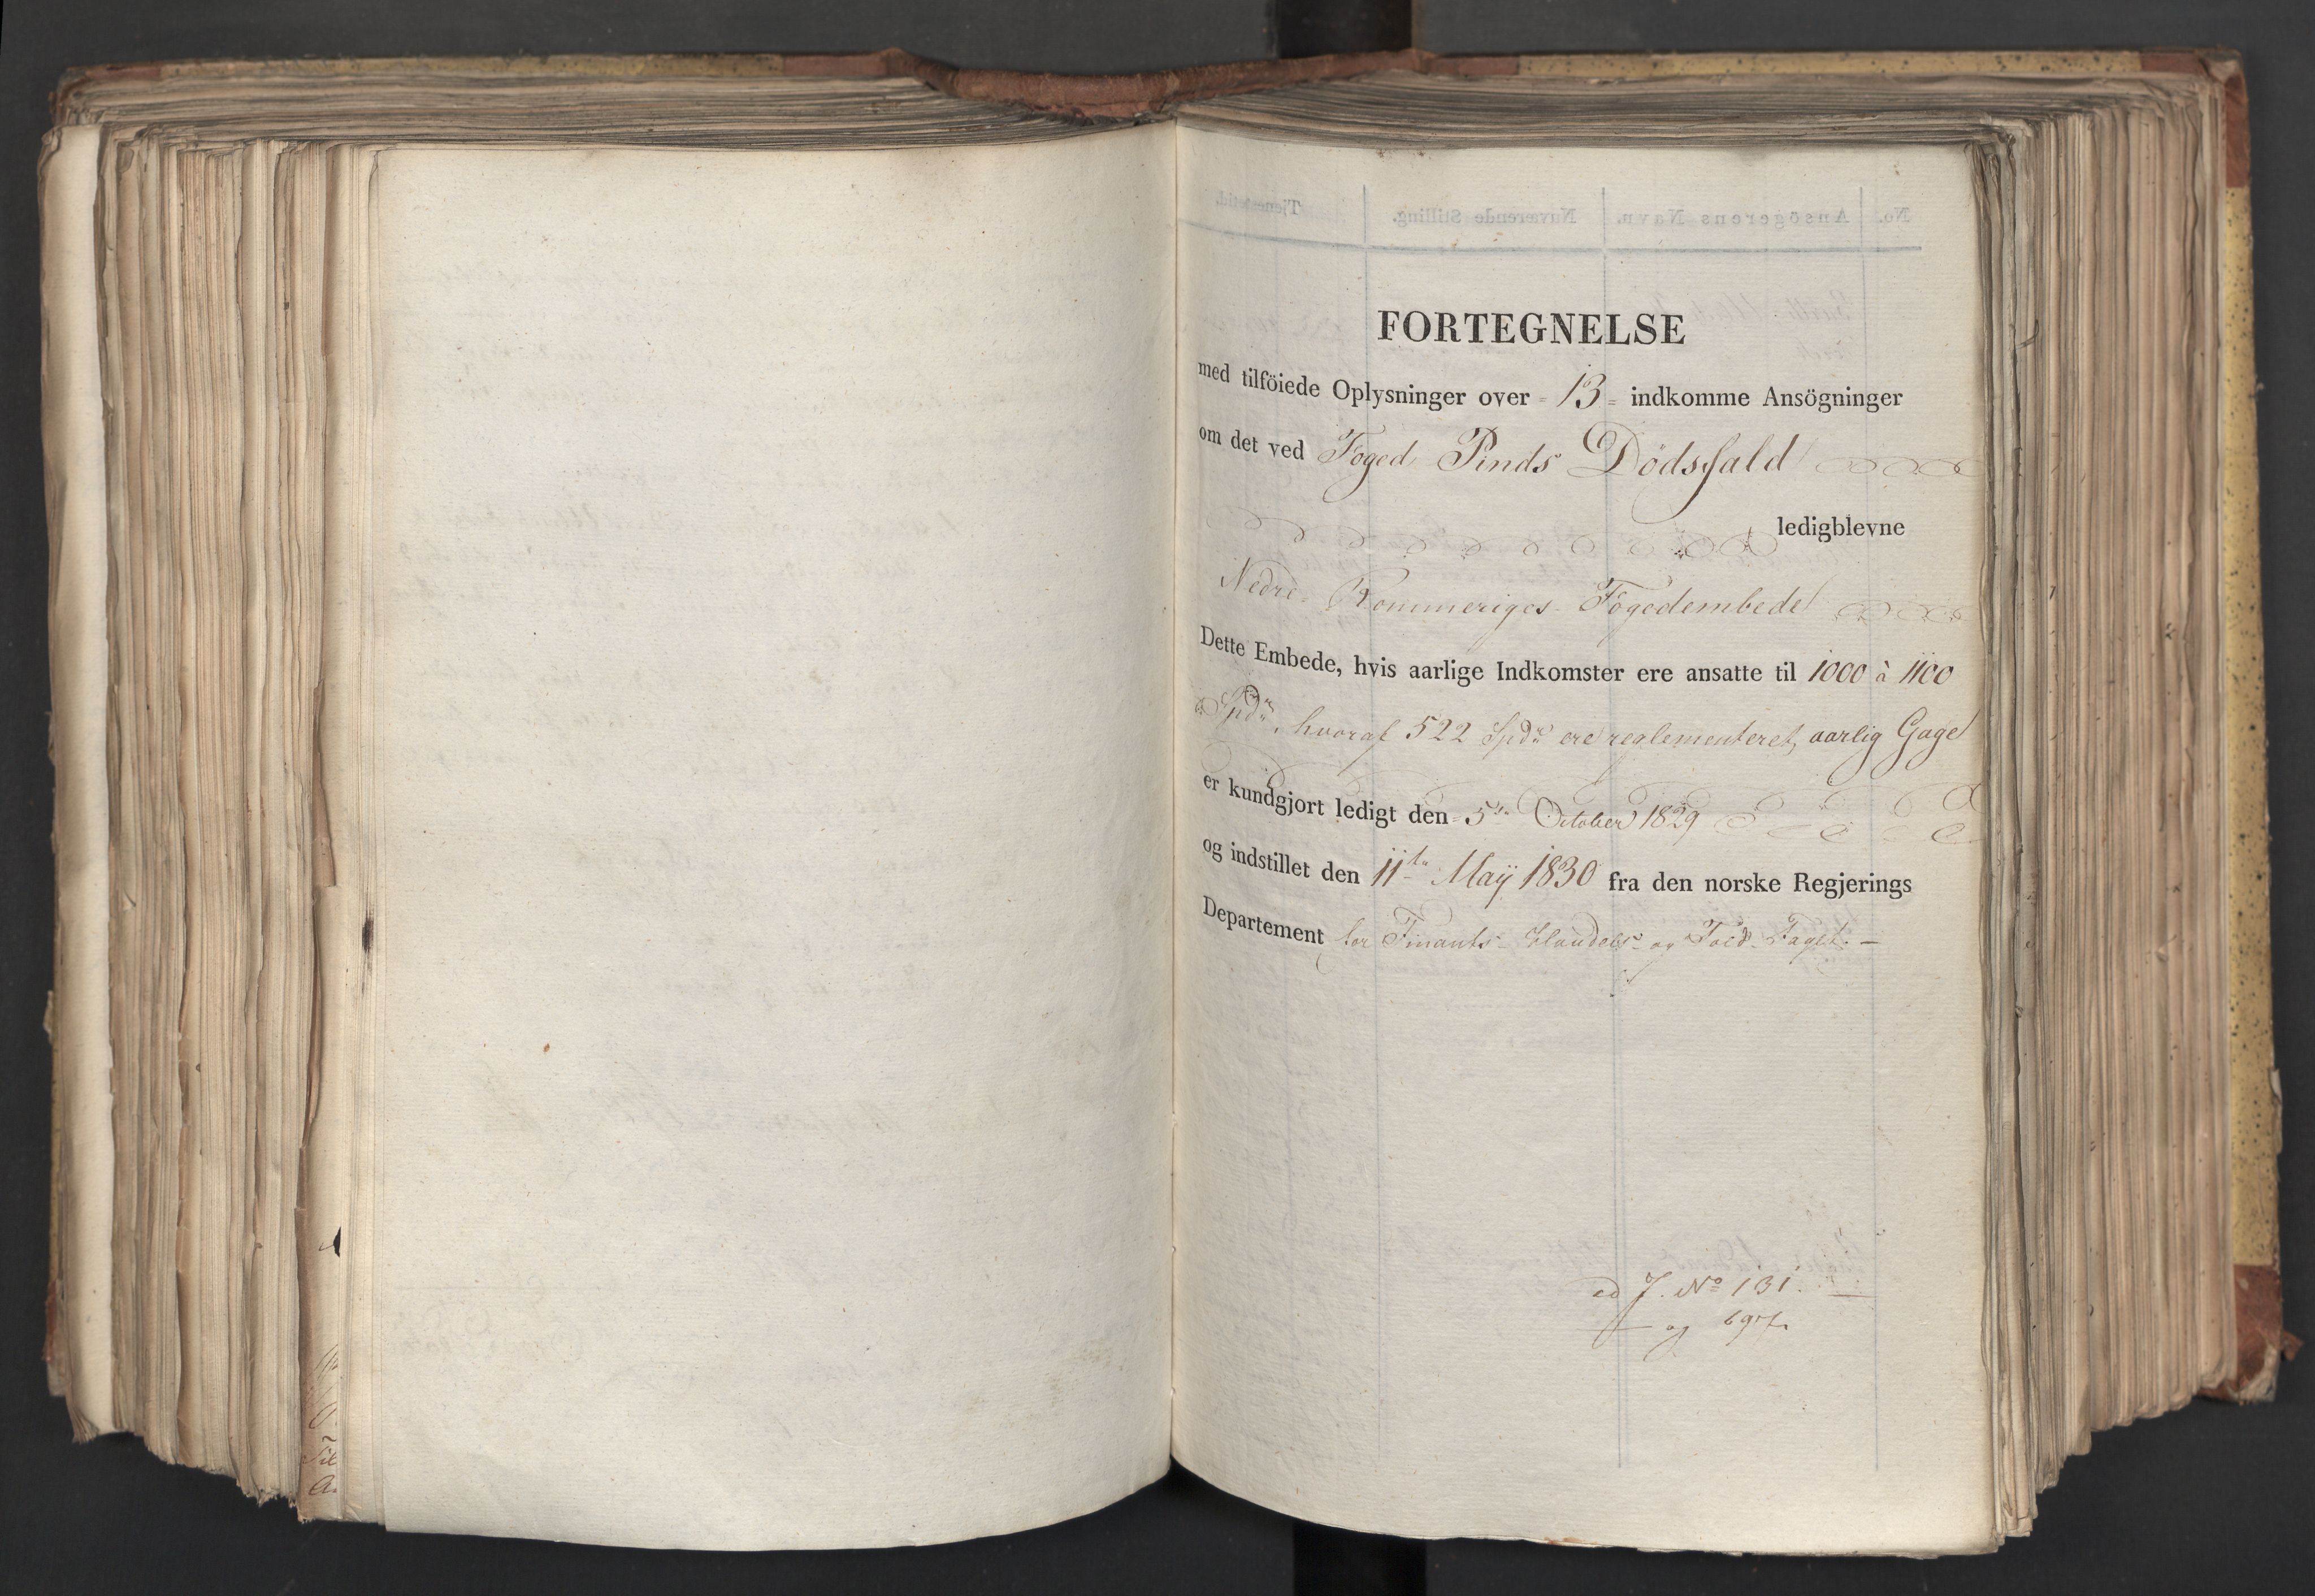 FORTEGNELSE
med tilföiede Oplysninger over = 13 = indkomne Ansögninger
om det ved Foged Pinds Dödsfald
ledigblevne
Nedre-Rommeriges Fogedembede
Dette Embede, hvis aarlige Indkomster ere ansatte til 1000 à 1100
Spdr, hvoraf 522 Spdr ere reglementeret, aarlig Gage
er kundgjort ledigt den 5te October 1829
og indstillet den 11te Maÿ 1830 fra den norske Regjerings
Departement for Finants- Handels- og Told-Faget. —
ad J. No 131.
og 697.